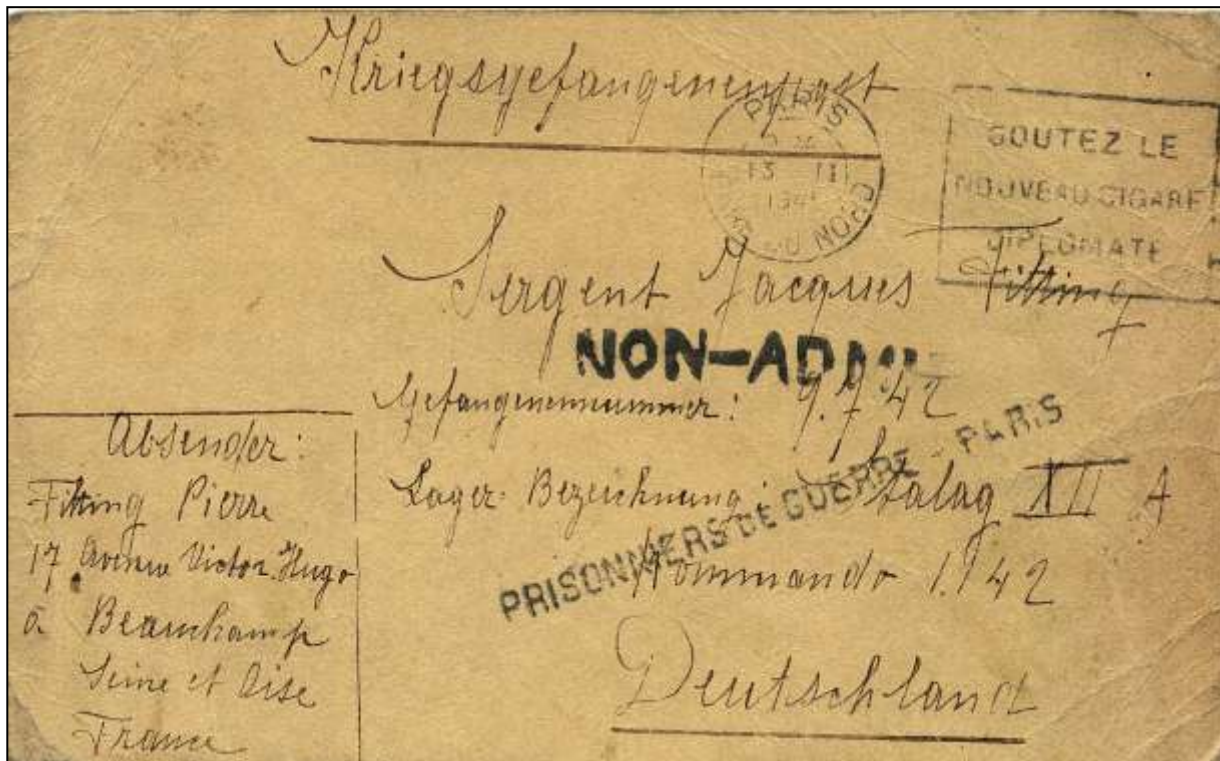 Kriegsgefangenenpost
PARIS
13 III
DU NORD
GOUTEZ LE
NOUVEAU CIGARE
DIPLOMATE
Sergent Jacques Fitting
NON-ADMIS
Gefangenennummer: 9.742
Lager-Bezeichnung: Stalag XII A
PRISONNIERS DE GUERRE - PARIS
Kommando 1.142
Deutschland
Absender:
Fitting Pierre
17 Avenue Victor Hugo
à Beauchamp
Seine et Oise
France